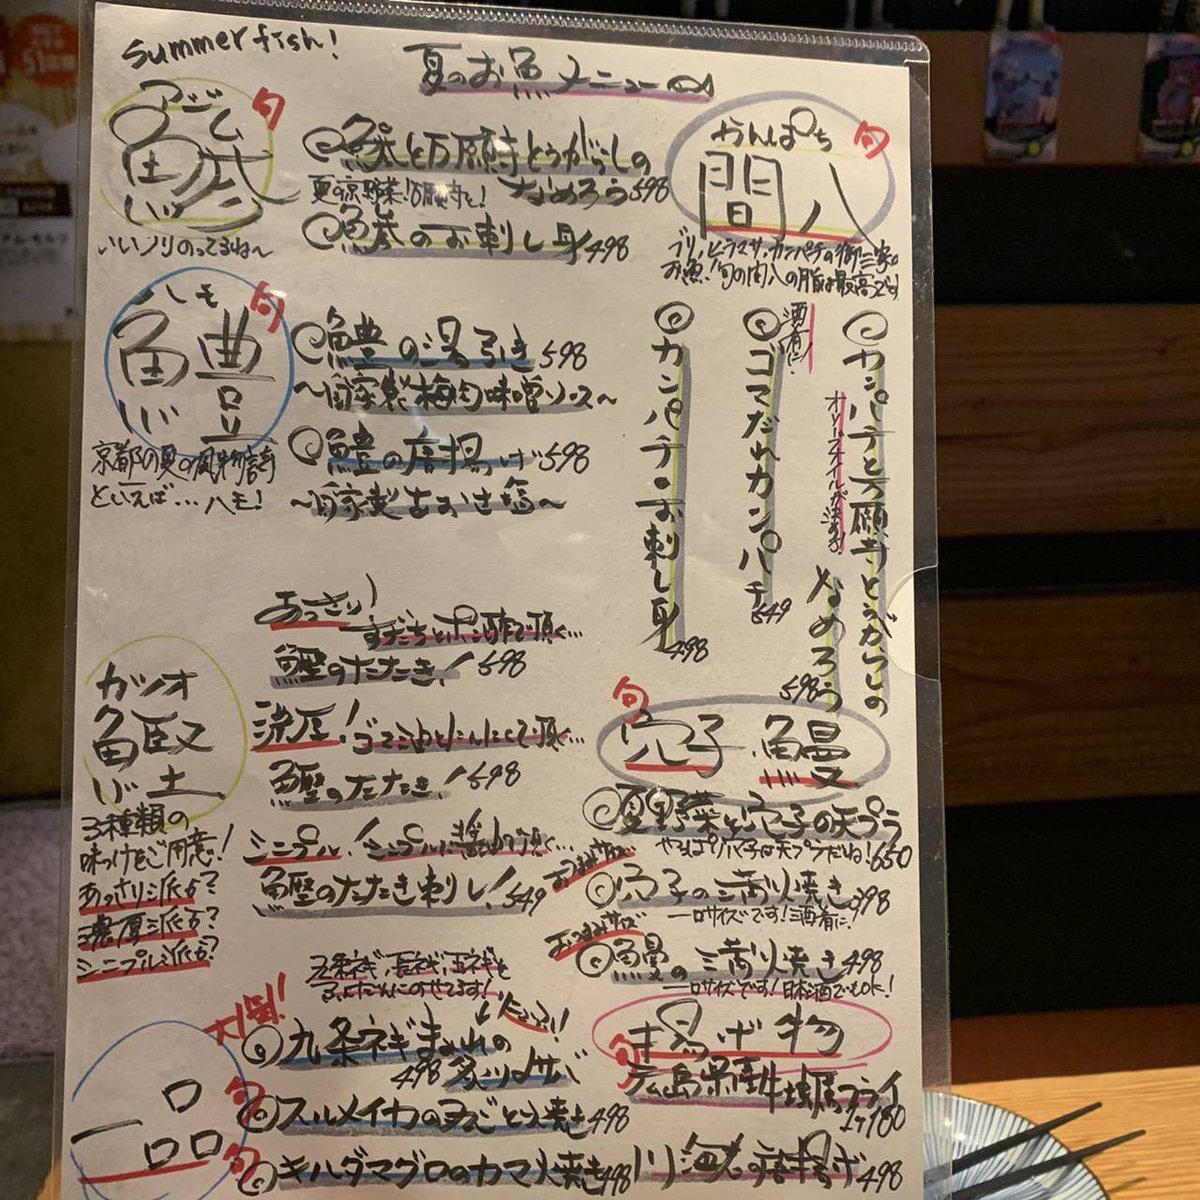 summer fish!
夏のお魚メニュー
アジ
鯵
旬
いいノリのってるね〜
鯵と万願寺とうがらしの
夏の京野菜!万願寺と!
なめろう 598
鯵のお刺し身 498
ハモ
鱧
旬
京都の夏の風物詩
といえば…ハモ!
鱧の湯引き 598
〜自家製梅肉味噌ソース〜
鱧の唐揚げ 598
〜自家製あおさ塩〜
カツオ
鰹
3種類の
味つけをご用意!
あっさり派か?
濃厚派か?
シンプル派か?
あっさり!
すだちとポン酢で頂く…
鰹のたたき! 598
濃厚!ゴマ油とにんにくで頂く…
鰹のたたき! 598
シンプル!シンプルに醤油で頂く…
鰹のたたき刺し! 549
一品
九条ネギ、長ネギ、玉ネギと
ふんだんにのせてます!
大人気!
九条ネギまみれの
炙りしめサバ 498
旬
スルメイカの丸ごと焼き 498
旬
キハダマグロのカマ焼き 498
かんぱち
間八
旬
ブリ、ヒラマサ、カンパチの御三家の
お魚!旬の間八の脂は最高です!
カンパチと万願寺とうがらしの
なめろう 598
オリーブオイルが決め手!
ゴマだれカンパチ 549
酒肴に!
カンパチのお刺し身 498
旬
穴子・鰻
夏野菜と穴子の天プラ
やっぱり穴子は天プラだね! 650
おつまみサイズ
穴子の蒲焼き 398
一口サイズです!酒肴に!
おつまみサイズ
鰻の蒲焼き 498
一口サイズです!日本酒でもOK!
揚げ物
旬
広島県産牡蠣フライ
1ヶ180
川海老の唐揚げ 498